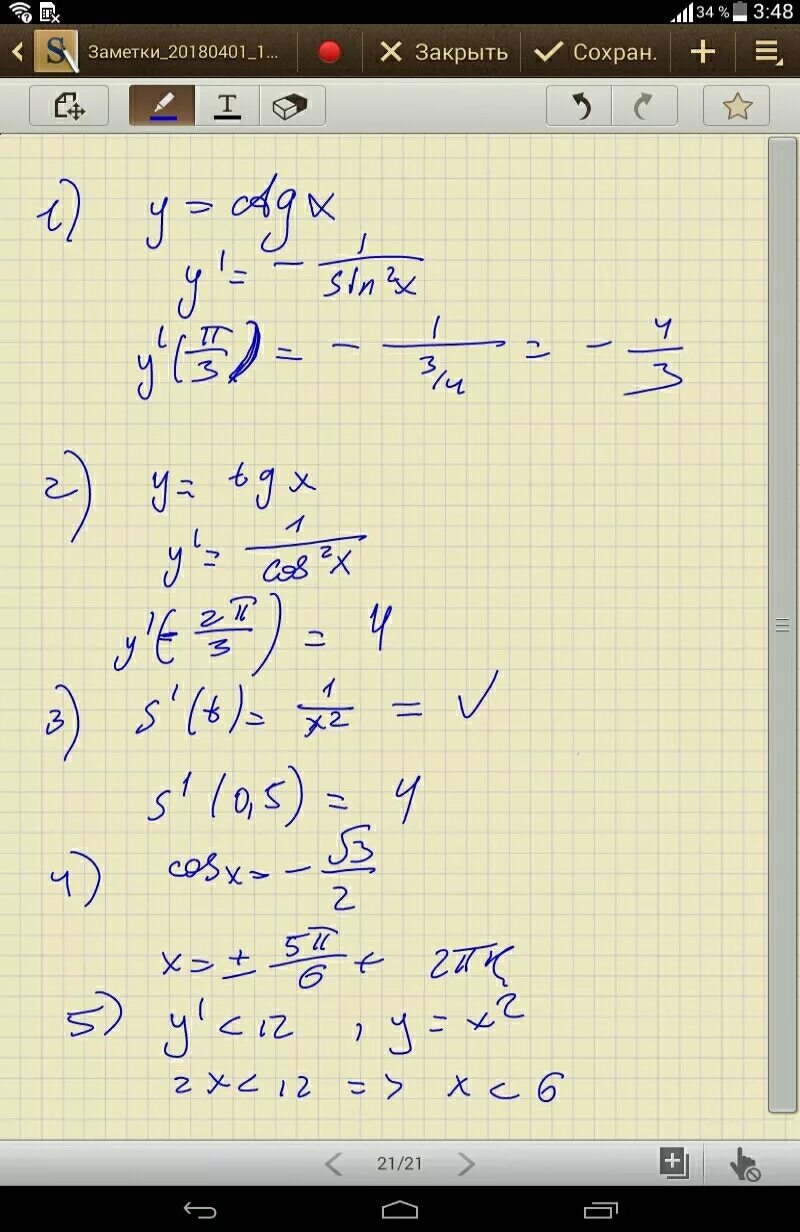 34 % 3:48
Заметки_20180401_1... Закрыть Сохран.
T
1) y = ctg x
y' = - 1/sin²x
y'(π/3) = - 1/(3/4) = - 4/3
2) y = tg x
y' = 1/cos²x
y'(-2π/3) = 4
3) s'(t) = 1/x² = v
s'(0,5) = 4
4) cos x = - √3/2
x = ± 5π/6 + 2πk
5) y' < 12 , y = x²
2x < 12 => x < 6
21/21